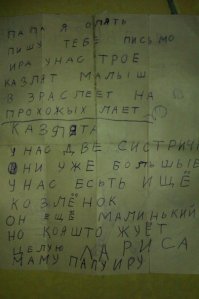 ПАПА Я ОПЯТЬ
ПИШУ ТЕБЕ ПИСЬМО
ИРА УНАС ТРОЕ
КАЗЛЯТ МАЛЫШ
ВЗРАСЛЕЕТ НА
ПРОХОЖЫХ ЛАЕТ
КАЗЛЯТА
УНАС ДВЕ СИСТРИЧЬ
ОНИ УЖЕ БОЛЬШЫЕ
УНАС ЕСЬТЬ ИЩЁ
КОЗЛЁНОК
ОН ЕЩЁ МАЛИНЬКИЙ
НО КОЯШТО ЖУЁТ
ЦЕЛУЮ ЛАРИСА
МАМУ ПАПУ ИРУ